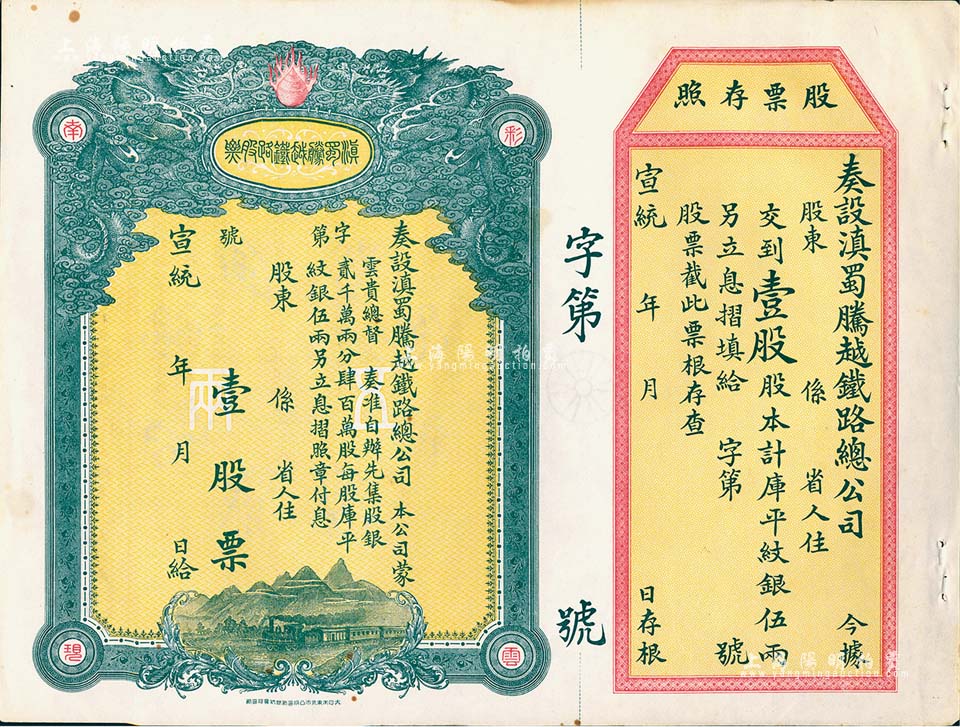 股票存照
奏設滇蜀騰越鐵路總公司 今據
股東 係 省人住
交到壹股股本計庫平紋銀伍兩
另立息摺填給 字第 號
股票截此票根存查
宣統 年 月 日存根
字第 號
滇蜀騰越鐵路股票
彩
雲
南
碧
奏設滇蜀騰越鐵路總公司 本公司蒙
雲貴總督 奏准自辦先集股銀
貳千萬兩分肆百萬股每股庫平
紋銀伍兩另立息摺照章付息
字第
股東 係 省人住
號
壹股票
宣統 年 月 日給
伍
兩
上海陽明拍卖
www.yangmingauction.com
上海陽明拍卖
上海陽明拍卖
www.yangmingauction.com